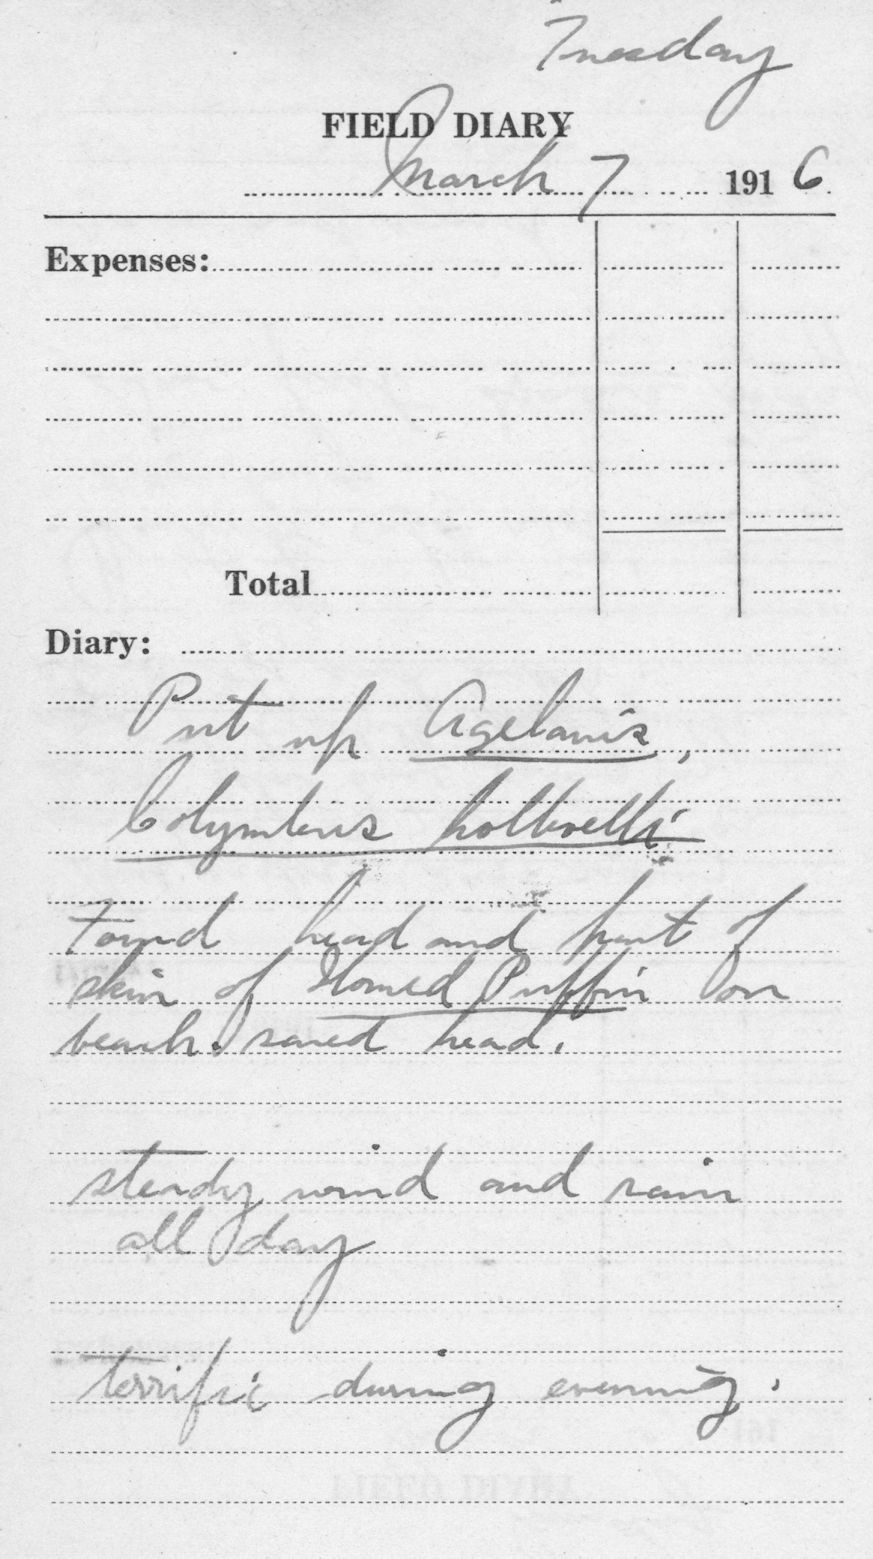 Tuesday
FIELD DIARY
March 7 1916
Expenses:
Total
Diary:
Put up Agelaius,
Colymbus holboelli.
Found head and part of
skin of Horned Puffin on
beach. saved head.
steady wind and rain
all day
terrific during evening.